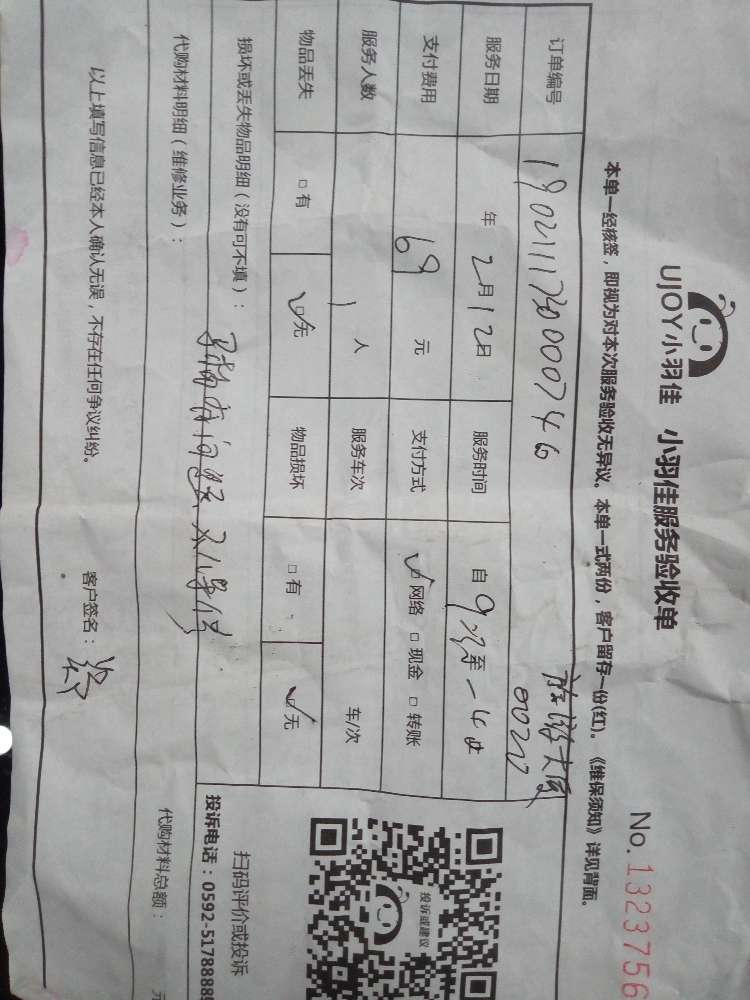 UJOY小羽佳 小羽佳服务验收单
No.1323756
本单一经核签，即视为对本次服务验收无异议。本单一式两份，客户留存一份(红)。《维保须知》详见背面。
订单编号 190211173000746
0020
服务日期 年 2月12日 服务时间 自 至
支付费用 69 元 支付方式 ☑网络 □现金 □转账
服务人数 1 人 服务车次 车/次
物品丢失 □有 ☑无 物品损坏 □有 ☑无
损坏或丢失物品明细（没有可不填）：
代购材料明细（维修业务）：
代购材料总额： 元
以上填写信息已经本人确认无误，不存在任何争议纠纷。 客户签名：
投诉或建议
扫码评价或投诉
投诉电话：0592-5178888